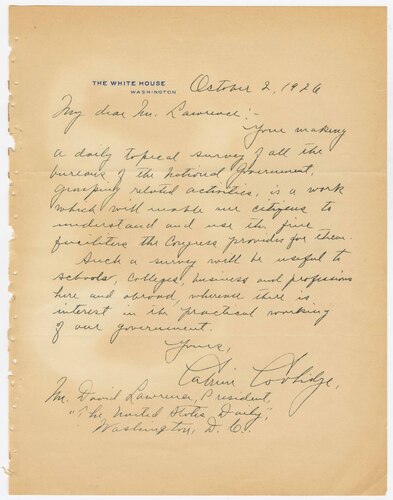 THE WHITE HOUSE
WASHINGTON
October 2, 1926
My dear Mr. Lawrence:-
Your making
a daily topical survey of all the
bureaus of the National Government,
grouping related activities, is a work
which will enable our citizens to
understand and use the fine
facilities the Congress provides for them.
Such a survey will be useful to
schools, colleges, business and professions
here and abroad, wherever there is
interest in the practical working
of our government.
Yours,
Calvin Coolidge,
Mr. David Lawrence, President,
"The United States Daily",
Washington, D.C.